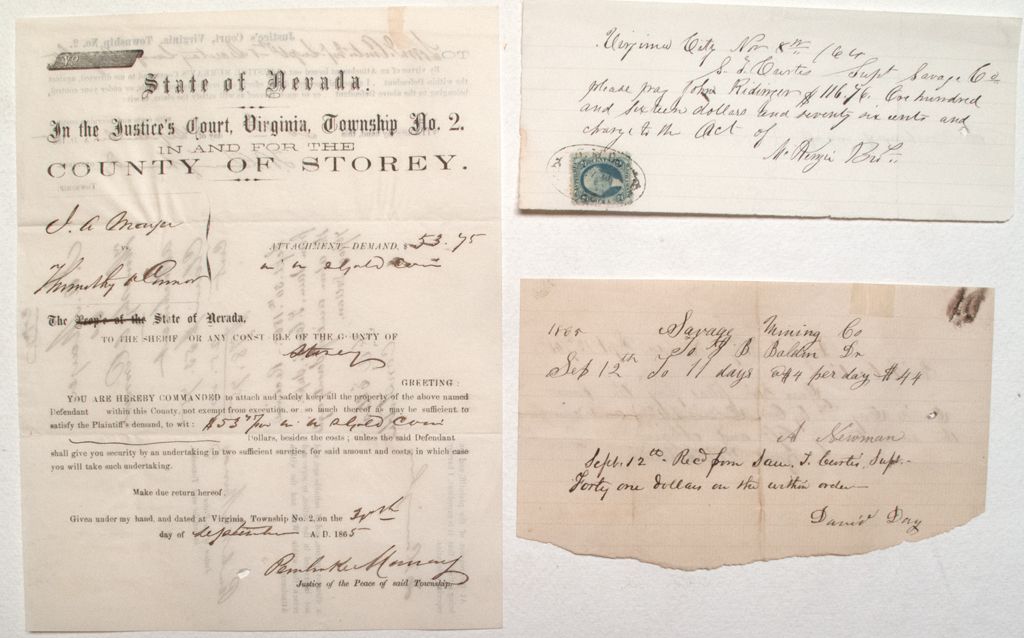 State of Nevada.
In the Justice's Court, Virginia, Township No. 2.
IN AND FOR THE
COUNTY OF STOREY.
J. A.
vs.
ATTACHMENT—DEMAND, $53.75
The People of the State of Nevada,
TO THE SHERIFF OR ANY CONSTABLE OF THE COUNTY OF
Storey
GREETING:
YOU ARE HEREBY COMMANDED to attach and safely keep all the property of the above named
Defendant within this County, not exempt from execution, or so much thereof as may be sufficient to
satisfy the Plaintiff's demand, to wit: $53 gold coin
Dollars, besides the costs; unless the said Defendant
shall give you security by an undertaking in two sufficient sureties, for said amount and costs, in which case
you will take such undertaking.
Make due return hereof.
Given under my hand, and dated at Virginia, Township No. 2, on the
day of September A. D. 1865
Pembroke Murray
Justice of the Peace of said Township.
Virginia City Nov 8th
S. F. Curtis Supt Savage Co
please pay John Ridinger $116.76. One hundred
and sixteen dollars and seventy six cents and
charge to the Act of
McKenzie Bro.
1865 Savage Mining Co
To J B Baldin Dr
Sep 12th To 11 days @$4 per day $44
A Newman
Sept. 12th Recd from Sam. F. Curtis, Supt.
Forty one dollars on the within order
David Day